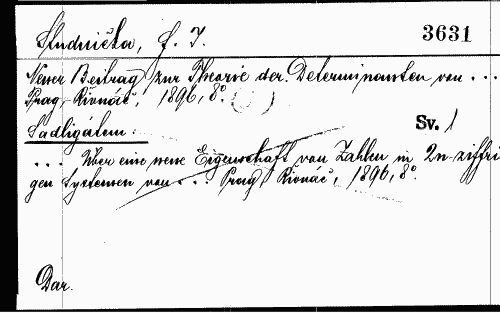 3631
Studnička, F. J.
Neuer Beitrag zur Theorie der Determinanten von ...
Prag, Řivnáč, 1896, 8°.
Sv. 1
... Über eine neue Eigenschaft von Zahlen in 2n-ziffri
gen Systemen von ... Prag, Řivnáč, 1896, 8°.
Dar.